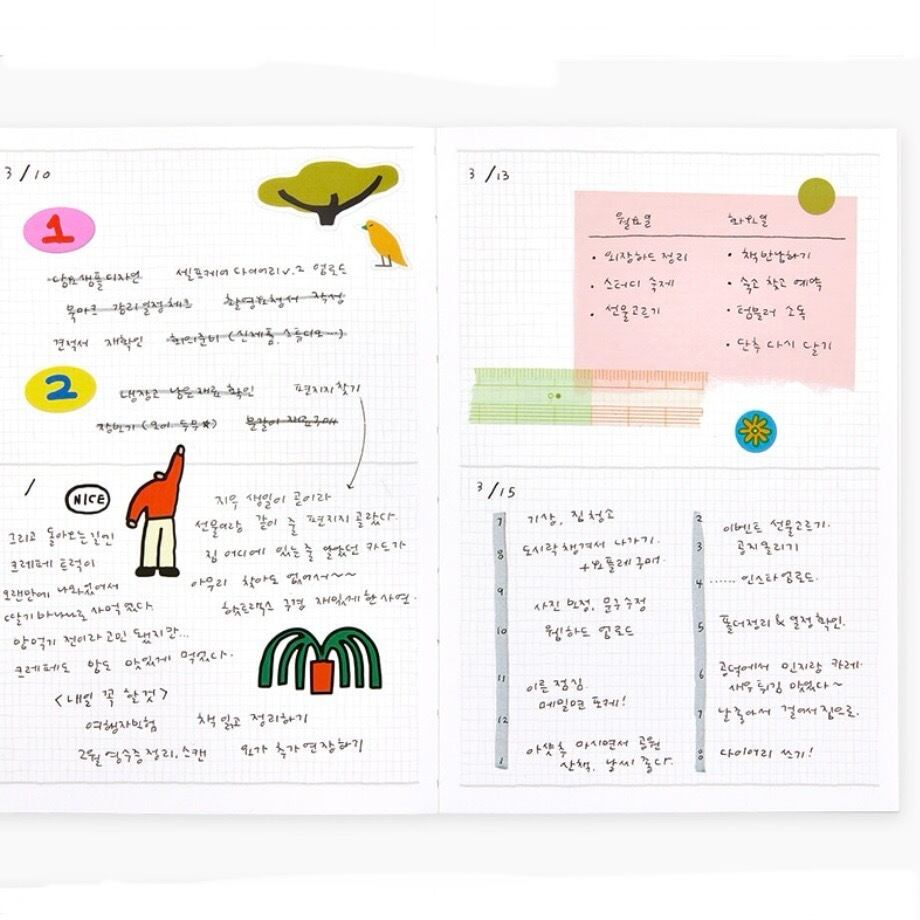 3/10
1
냉요 샘플 디자인 셀프케어 다이어리 v.2 업로드
북마크 감리 일정체크 촬영요청서 작성
견적서 재확인 회의준비 (신제품, 스튜디오...)
2
냉장고 남은재료 확인 편지지 찾기
장보기 (오이, 두부★) 분갈이 재료구매
/
NICE
그리고 돌아오는길엔
크레페 트럭이
오랜만에 나와있어서
딸기바나나로 사먹었다
밥먹기 전이라 고민됐지만...
크레페도 밥도 맛있게 먹었다.
지우 생일이 곧이라
선물이랑 같이 줄 편지지 골랐다.
집 어디에 있는 줄 알았던 카드가
아무리 찾아도 없어서~~
핫트랙스 구경 재밌게 한 사연.
<내일 꼭 할것>
여행자보험 책 읽고 정리하기
2월 영수증정리, 스캔 요가 추가연장하기
3/13
월요일 화요일
• 외장하드 정리 • 책 반납하기
• 스터디 숙제 • 숙소 찾고 예약
• 선물고르기 • 텀블러 소독
• 단추 다시 달기
3/15
7 기상, 집 청소
8 도시락 챙겨서 나가기.
+요플레 구매.
9 사진 보정, 문구수정
10 웹하드 업로드
11 이른 점심
메밀면 포케!
12
1 아샷추 마시면서 공원
산책, 날씨 좋다.
2 이벤트 선물고르기.
3 공지올리기
4 ...... 인스타업로드.
5 폴더정리 & 일정확인.
6 공덕에서 민지랑 카레
새우튀김 맛있다~
7 날 좋아서 걸어서 집으로.
8 다이어리 쓰기!